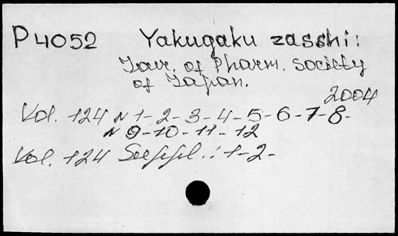 P4052 Yakugaku zasshi:
Jour. of Pharm. society
of Japan.
2004
Vol. 124 N 1-2-3-4-5-6-7-8-
N 9-10-11-12
Vol. 124 Suppl.: 1-2-